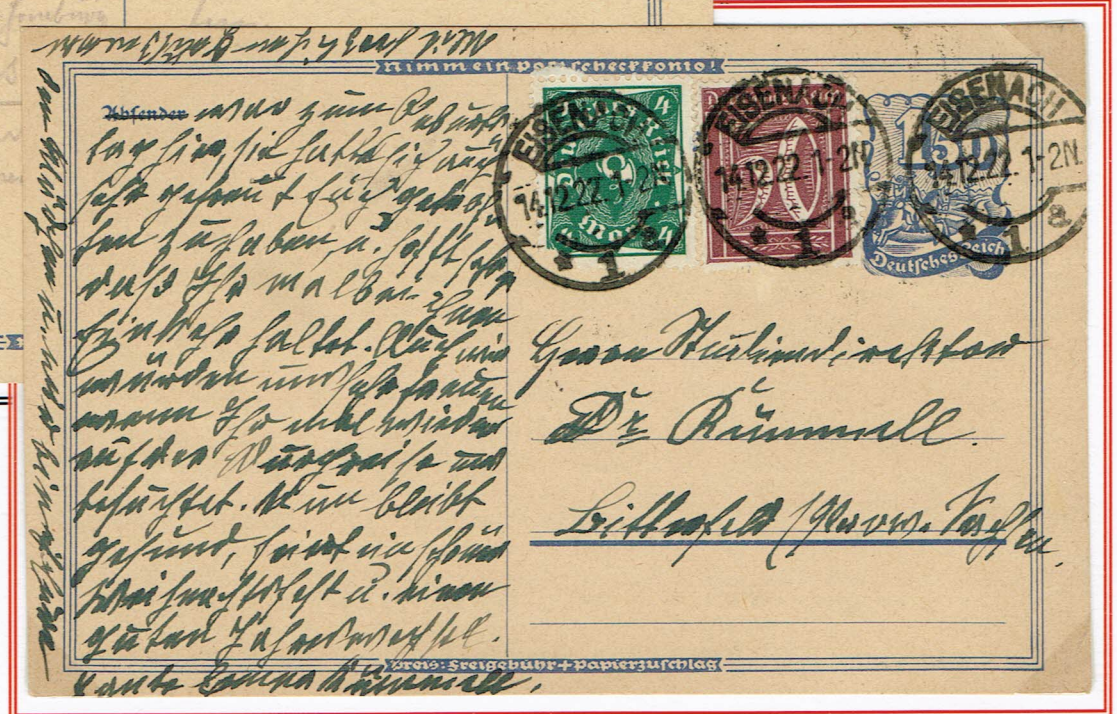 Nimm ein Postscheckkonto!
Absender
war zum Geburts
tag hier, sie hatte sich auch
sehr gefreut Euch getrof-
fen zu haben u. hofft sehr
daß Ihr mal bei Ihnen
Einkehr haltet. Auch wir
würden uns sehr freuen
wenn Ihr mal wieder
auf der Durchreise uns
besuchtet. Nun bleibt
gesund, feiert ein schönes
Weihnachtsfest u. einen
guten Jahreswechsel.
Tante Emma Kümmell.
Mit herzlichen
EISENACH
14.12.22. 1-2N.
* 1 a
EISENACH
14.12.22. 1-2N
* 1 a
EISENACH
14.12.22. 1-2N.
* 1 a
4
4
4
150
Deutsches Reich
Herrn Studiendirektor
Dr. Kümmell.
Bitterfeld /Prov. Sachsen.
Preis: Freigebühr + Papierzuschlag